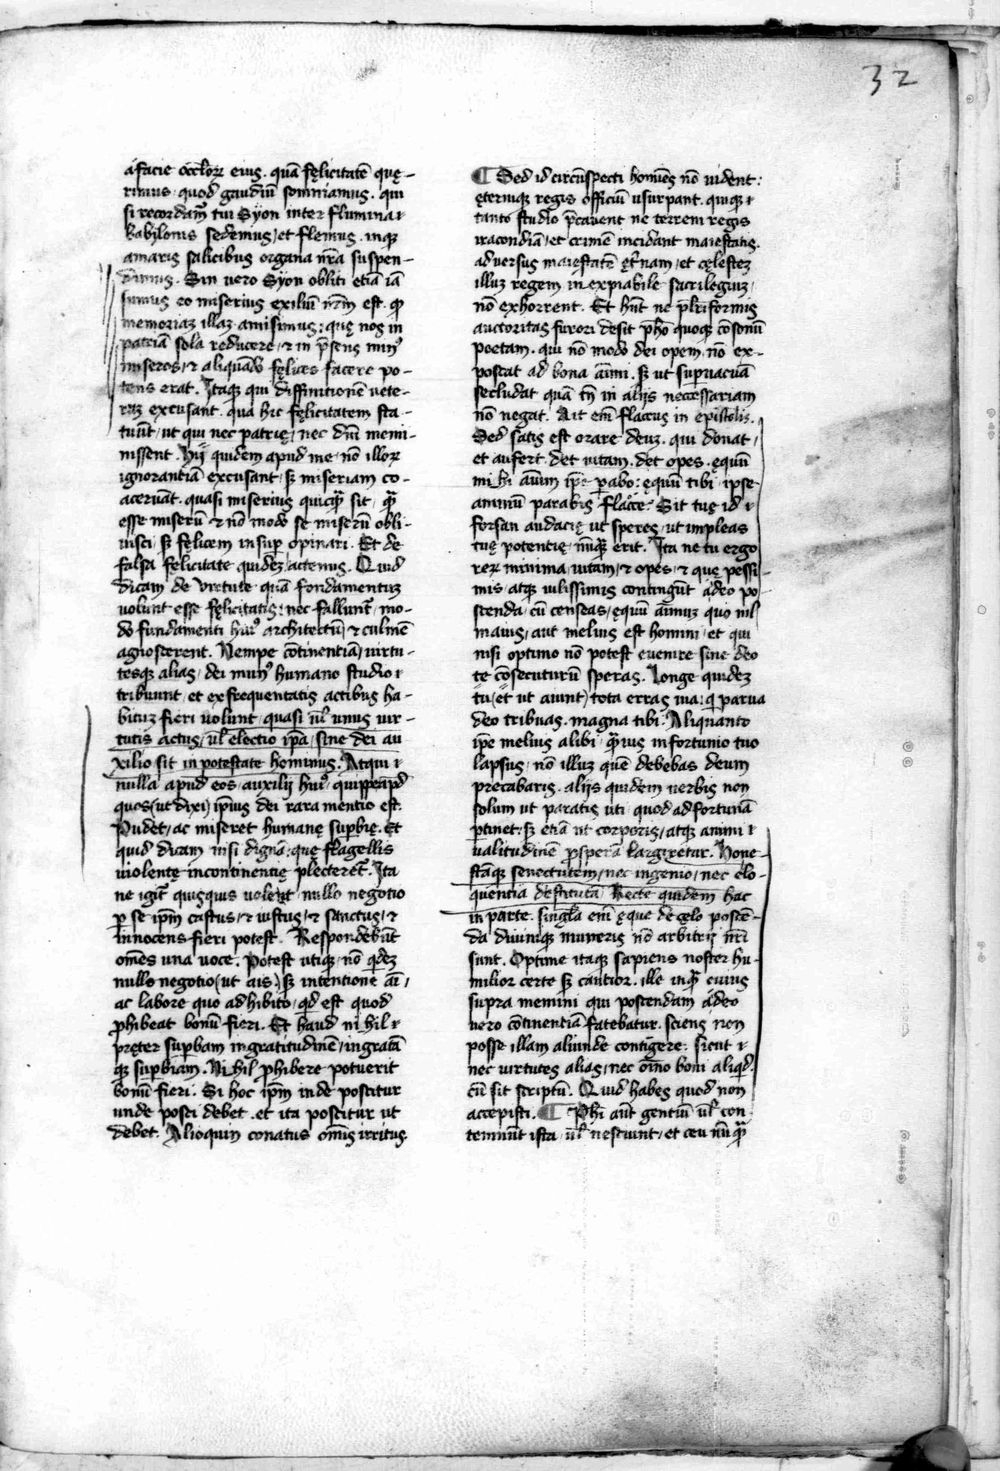 32
a facie occłoꝝ eius. quā fęlicitatē quę-
rimus. quod gaudiū somniamus. qui
si recordam̃ tui Syon inter flumina
babylonis sedemus, et flemus. inqꝫ
amaris salicibus organa nr̄a suspen-
dimus. Sin vero Syon obliti etiā iā
sumus eo miserius exiliū nr̄m est. qꝫ
memoriaꝫ illaꝫ amisimus: quę nos in
patriā sola reducere, ⁊ in p̄sens minꝰ
miseros, ⁊ aliquādo fęlices facere po-
tens erat. Itaqꝫ qui diffinitionē vete-
rāꝫ excusant. qua hic fęlicitatem sta-
tuūt, ut qui nec patrię, nec dn̄i memi-
nissent. Hij quidem apud me nō illoꝝ
ignorantiā excusant, sꝫ miseriam co-
aceruāt. quasi miserius quicq̄ sit, q̄
esse miserū ⁊ nō modo se miserū obli-
uisci, sꝫ fęlicem insuꝑ opinari. Et de
falsa felicitate quideꝫ actenus. Quid
dicam de virtute quā fondamentuꝫ
volunt esse fęlicitatis: nec fallunt̃, mo-
do fundamenti huiꝰ architectū, ⁊ culmē
agnoscerent. Nempe cōtinentiā, virtu-
tesqꝫ alias, dei munꝰ humano studio
tribuunt, et ex frequentatis actibus ha-
bituꝫ fieri volunt, quasi ul̓ unus vir-
tutis actus, ul̓ electio ip̄a, sine dei au
xilio sit in potestate hominis. Atqui
nulla apud eos auxilij huiꝰ, quippe apd̓
quos (ut dixi) ipsius dei rara mentio est.
Pudet, ac miseret humanę suꝑbię. Et
quid dicam nisi dignā, que flagellis
violentę incontinentię plecteret̃. Ita
ne igit̃ quisquis volent nullo negotio
ꝑ se ip̄m castus, ⁊ iustus, ⁊ sanctus, ⁊
innocens fieri potest. Respondebūt
om̄es una voce. Potest utiqꝫ, nō qdeꝫ
nullo negotio (ut ais) sꝫ intentione aī,
ac labore quo adhibito, qd̓ est quod
ꝓhibeat bonū fieri. Et haud nihil
pręter suꝑbam ingratitudinē, ingratā
qꝫ suꝑbiam. Nihil ꝓhibere potuerit
bonū fieri. Si hoc ip̄m inde poscitur
unde posci debet. et ita poscitur ut
debet. Alioquin conatus om̄is irritus
¶ Sed id circūspecti homīes nō vident:
ęterniqꝫ regis officiū usurpant. quiqꝫ
tanto studio p̄cavent ne terreni regis
iracondiā, et crimē incidant maiestatis.
adversus maięstatē ęt̓nam, et cęlesteꝫ
illuꝫ regem inexpiabile sacrilegiuꝫ,
nō exhorrent. Et hūt ne pl̄riformis
auctoritas furori desit p̄ho quoqꝫ cōsonū
poetam. qui nō modo dei opem nō ex-
poscat ad bona aīmi. sꝫ ut suꝑvacuā
secludat quā tn̄ in alijs necessariam
nō negat. Ait em̄ flaccus in epistolis.
Sed satis est orare deuꝫ. qui donat,
et aufert. det vitam. det opes. ęquū
mihi aīum ip̄e parabo: ęquū tibi ipse
animū parabis flacce? Sit tuę id
forsan audacię ut speres, ut impleas
tuę potentię nūqꝫ erit. Ita ne tu ergo
reꝝ minima, vitam, ⁊ opes, ⁊ quę pessi-
mis, atqꝫ vilissimis contingūt a deo po-
scenda, cū censeas, ęquū aīmuꝫ quo nil
maius, aut melius est homini, et qui
nisi optimo nō potest evenire sine deo
te cōsecuturū speras. Longe quideꝫ
tu (et ut aiunt) tota erras via: qui parua
deo tribuas. magna tibi. Aliquanto
ip̄e melius alibi, q̄vis infortunio tuo
lapsus, nō illuꝫ quē debebas deum
precabaris. alijs quidem verbis non
solum ut paratis uti quod ad fortunā
ꝑtinet, sꝫ etiā ut corporis, atqꝫ animi
valitudinē prosperā largiretur. Hone-
staqꝫ senectutem, nec ingenio, nec elo-
quentia destituta. Recte quidem hac
in parte. singl̓a em̄ ęque de cęlo poscē-
da diviniqꝫ muneris nō arbitrij nr̄i
sunt. Optime itaqꝫ sapiens noster hu-
milior certe sꝫ cautior. ille inq̄ cuius
supra memini qui poscendam a deo
vero cōtinentiā fatebatur. sciens non
posse illam aliunde contigere: sicut
nec virtutes alias, nec oīno boni aliqd̓.
cū sit scriptū. Quid habes quod non
accepisti. ¶ Phi aūt gentiū ul̓ con
temnūt ista, ul̓ nesciunt, et ceu nūq̄